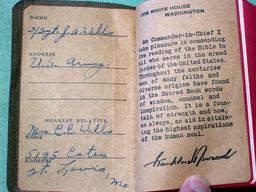 NAME
S/Sgt J. A. Wells
ADDRESS
U.S. Army
NEAREST RELATIVE
NAME
Mrs C. C. Wells
5195 Cates
ADDRESS
St. Louis, Mo
THE WHITE HOUSE
WASHINGTON
As Commander-in-Chief I
take pleasure in commending
the reading of the Bible to
all who serve in the armed
forces of the United States.
Throughout the centuries
men of many faiths and
diverse origins have found
in the Sacred Book words
of wisdom, counsel and
inspiration. It is a foun-
tain of strength and now,
as always, an aid in attain-
ing the highest aspirations
of the human soul.
Franklin D Roosevelt